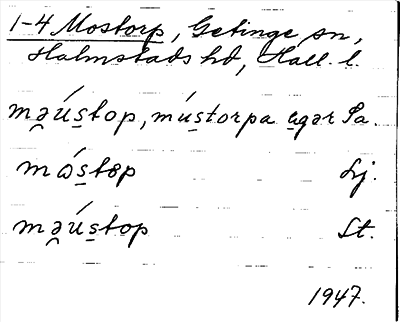 1-4 Mostorp, Getinge sn,
Halmstads hd, Hall. l.
mə̯ú̱s̱top, mús̱torpa a̱gər Sa.
mώs̱tɵp Lj.
mə̯ús̱top St.
1947.